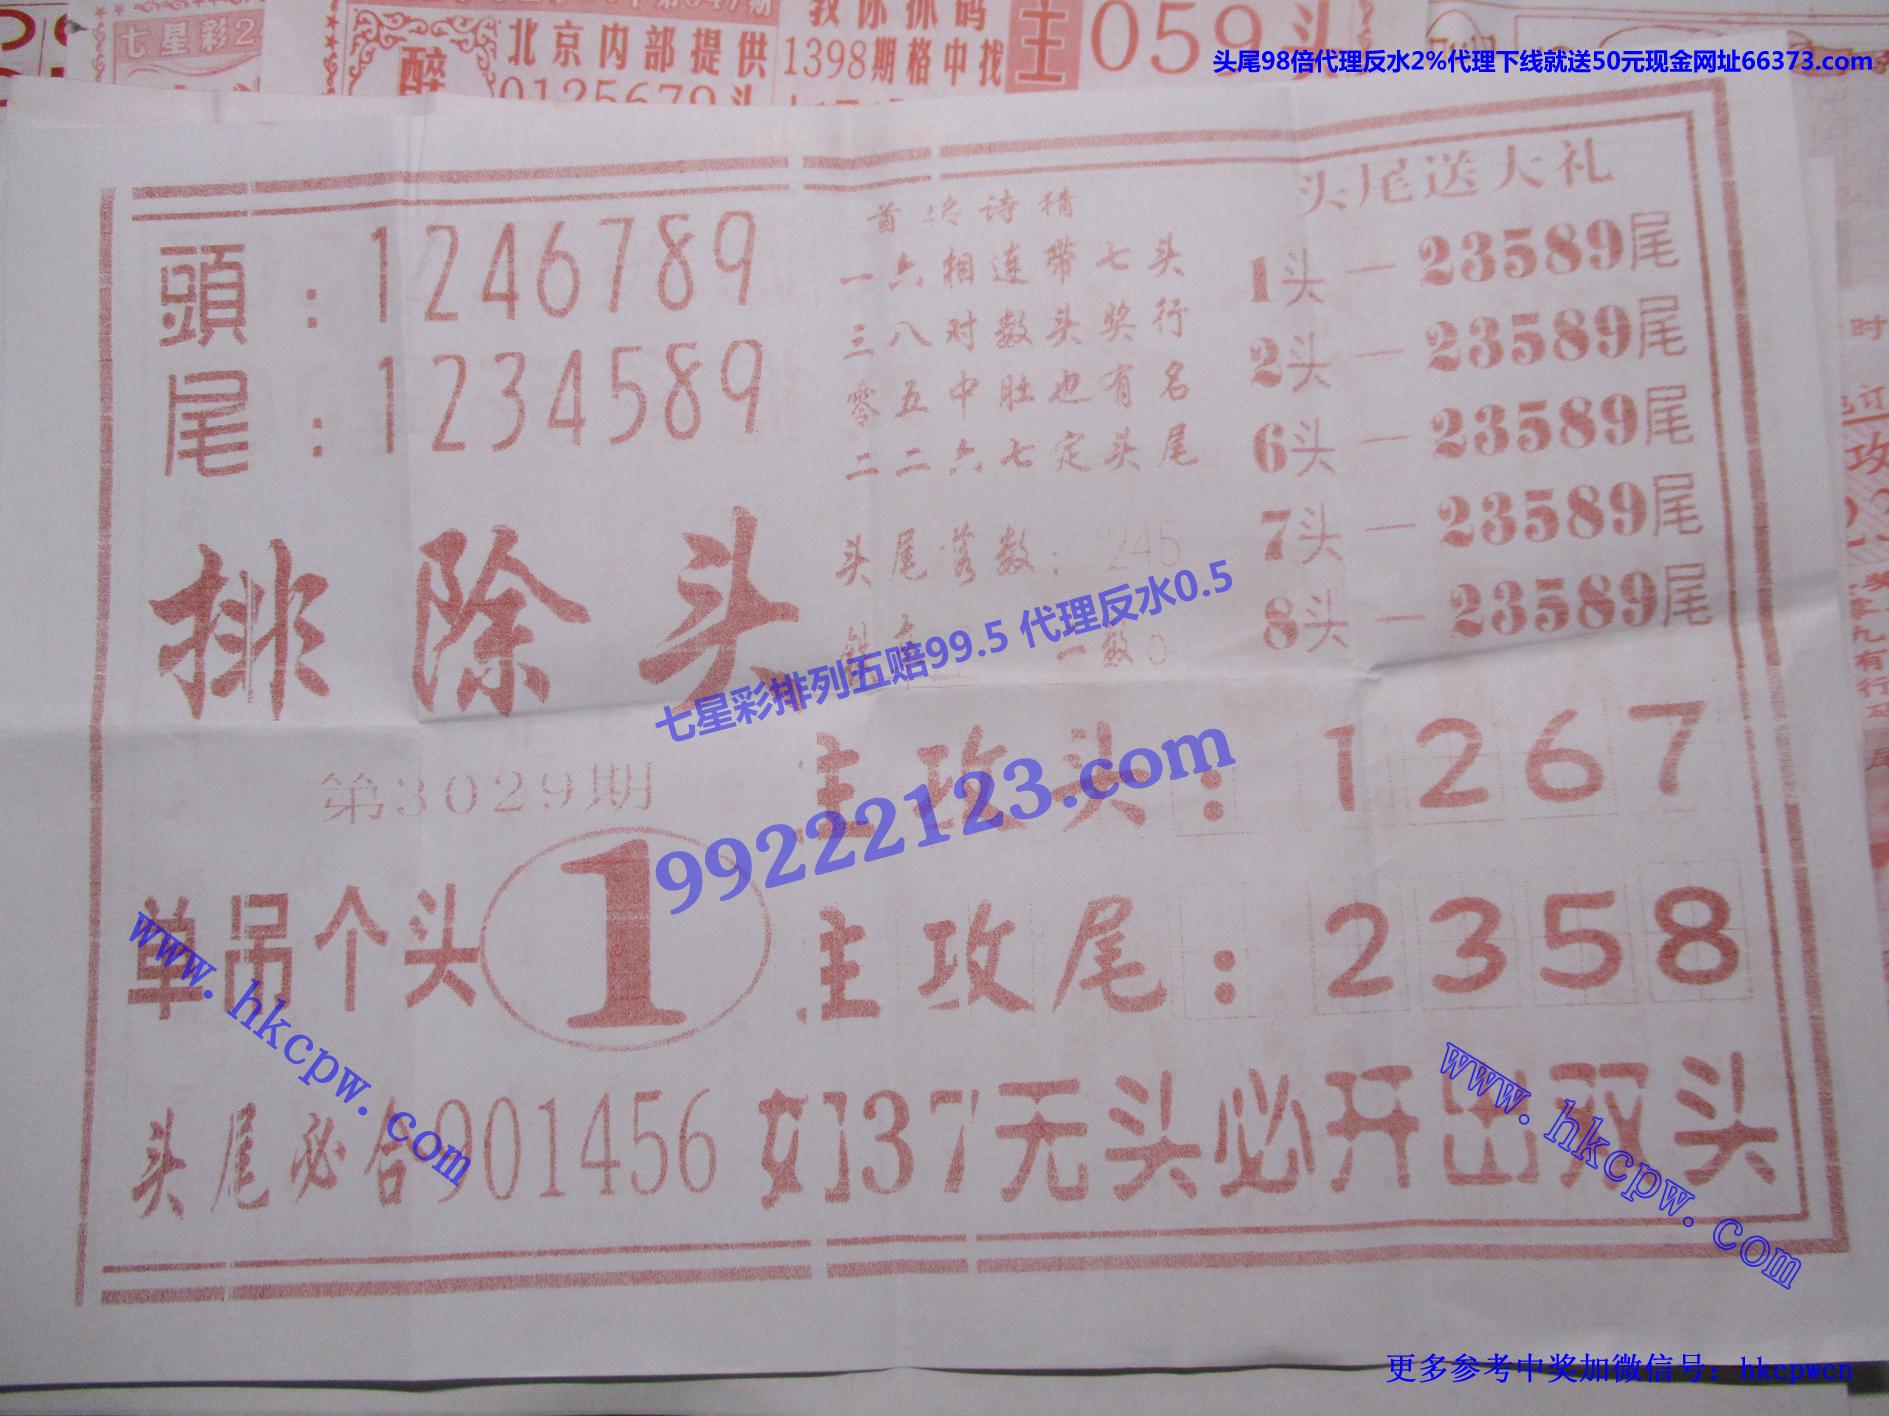 七星彩2
北京内部提供
醉
0125679头
教你抓码
1398期格中找
主
059头
头尾98倍代理反水2%代理下线就送50元现金网址66373.com
頭：1246789
尾：1234589
排除头
第3029期
单吊个头 1
头尾必合901456 如37无头必开出双头
首 诗猜
一六相连带七头
三八对数头奖行
零五中肚也有名
二二六七定头尾
头尾 数：1245
一数0
主攻头：1267
主攻尾：2358
头尾送大礼
1头—23589尾
2头—23589尾
6头—23589尾
7头—23589尾
8头—23589尾
七星彩排列五赔99.5 代理反水0.5
99222123.com
www.hkcpw.com
www.hkcpw.com
更多参考中奖加微信号：hkcpwcn